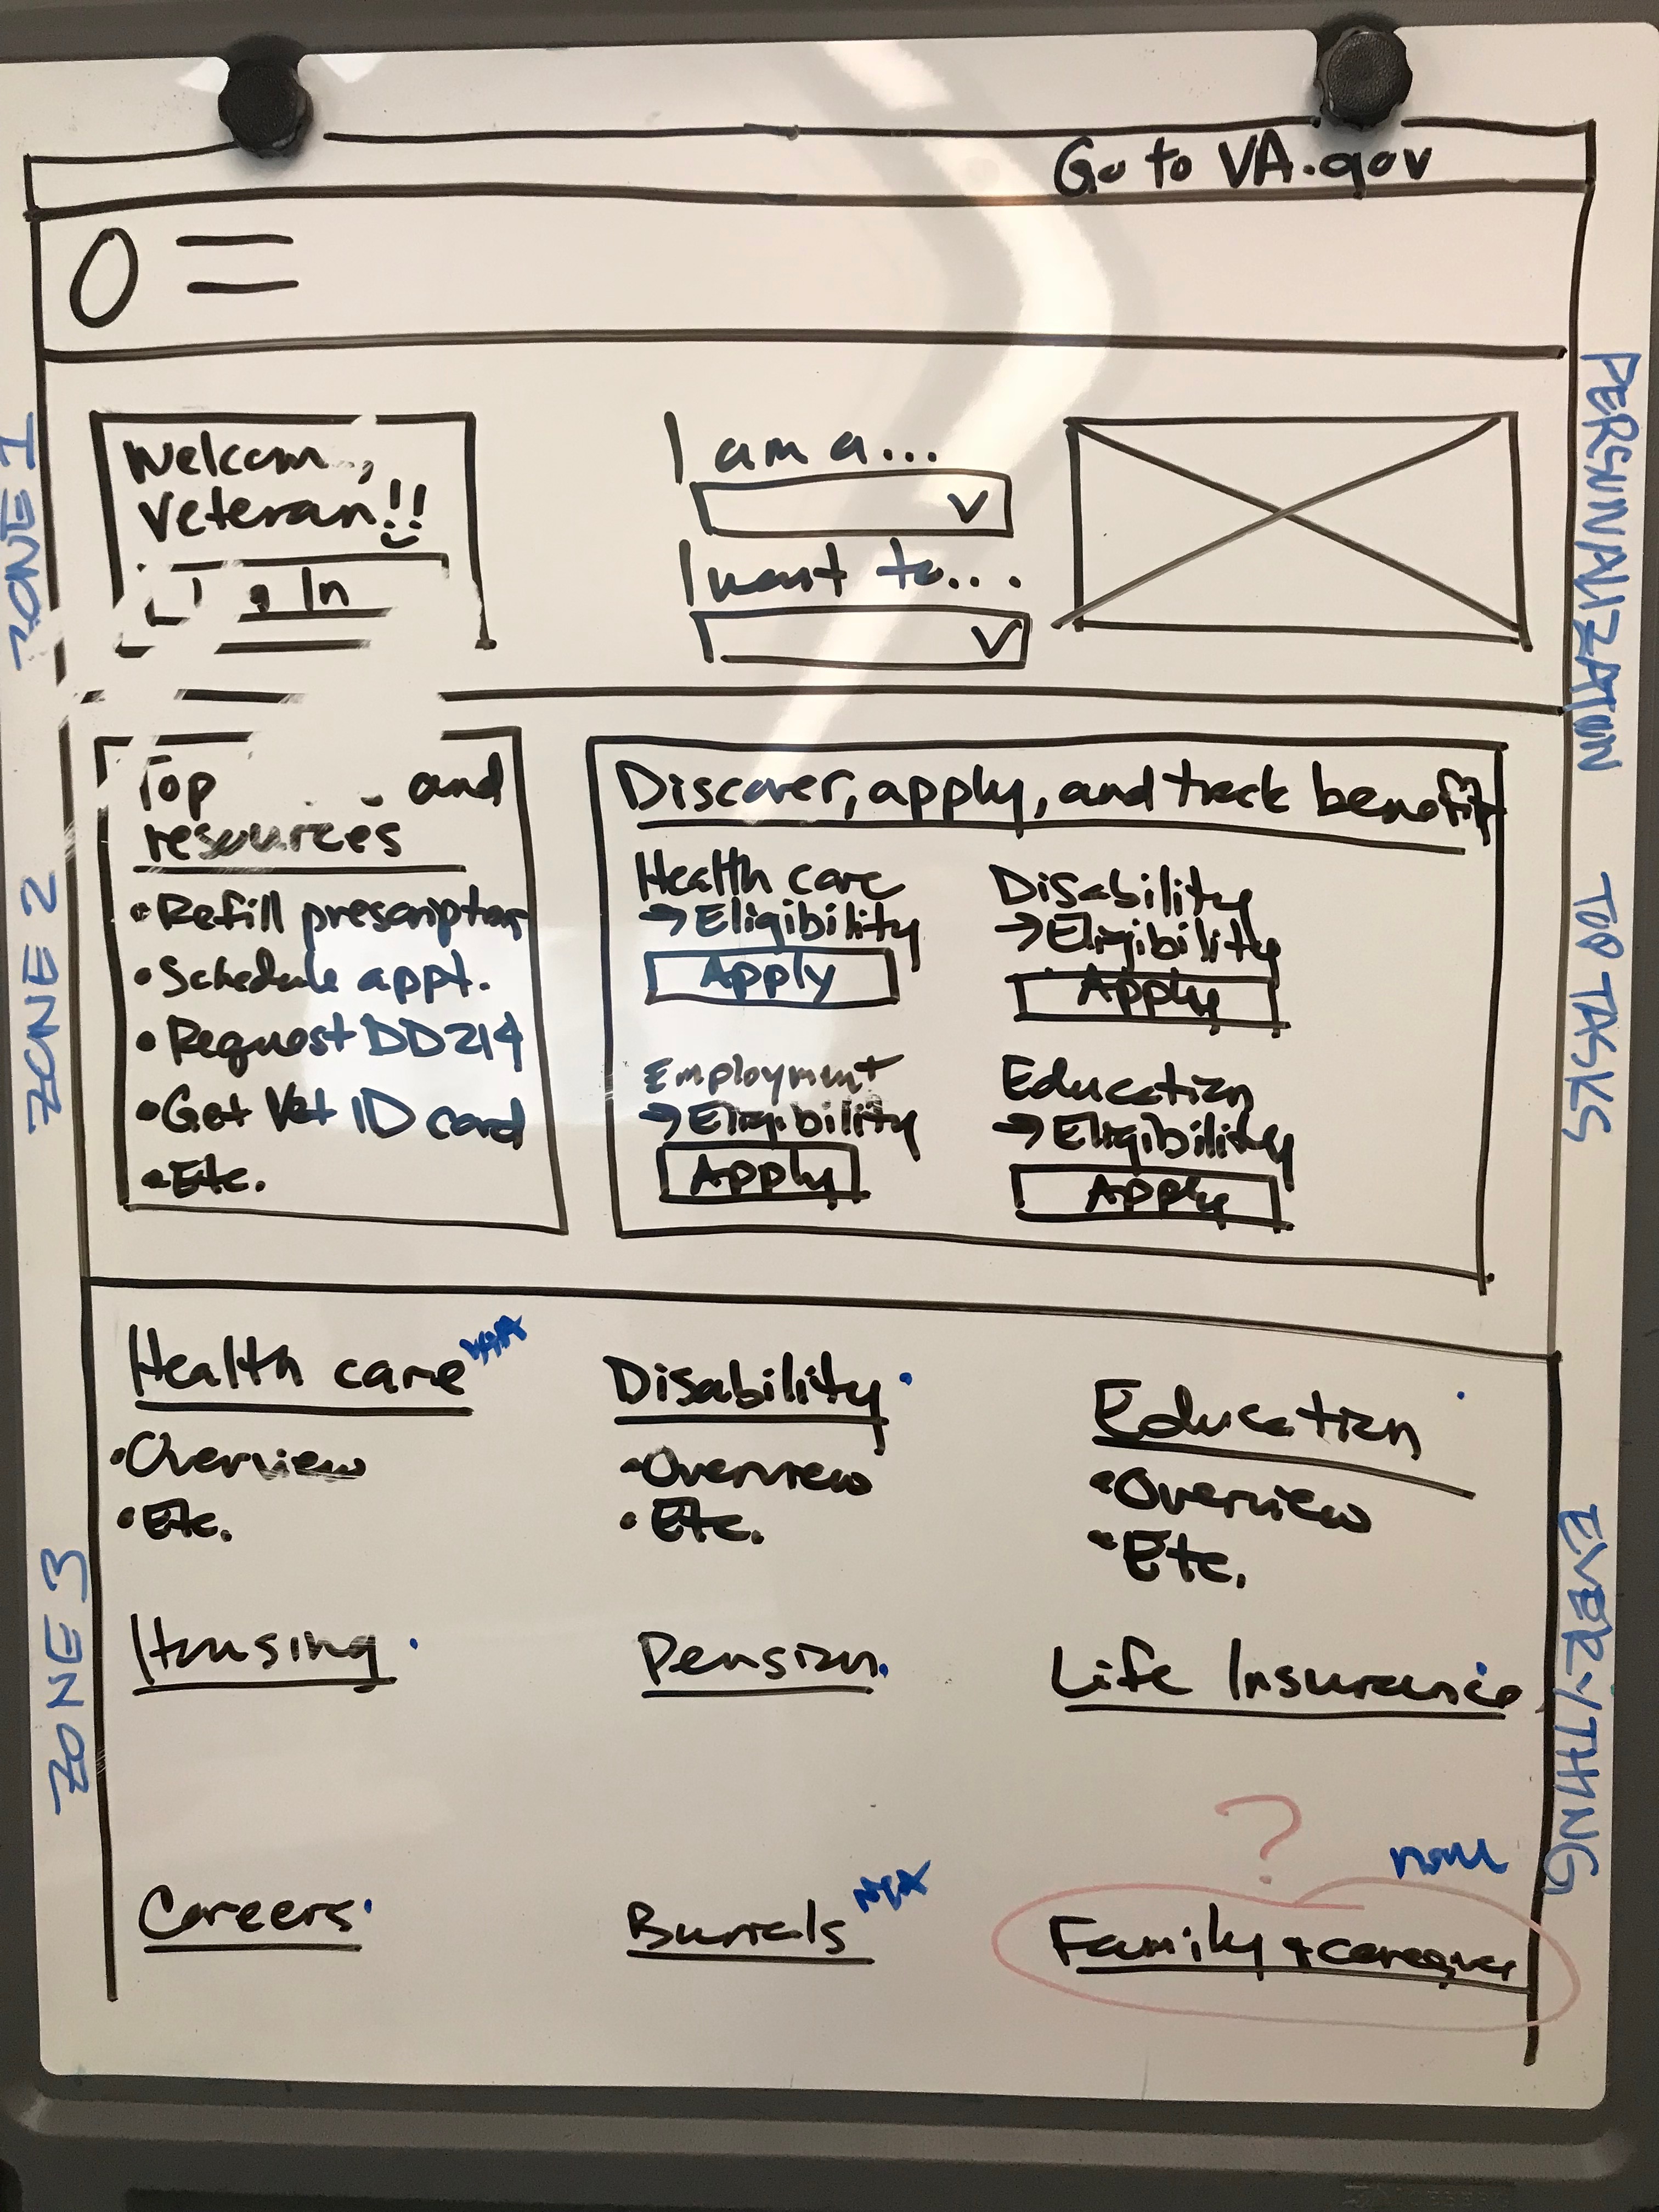 Go to VA.gov
ZONE 1
PERSONALIZATION
Welcom,
Veteran!!
In
I am a...
I want to....
ZONE 2
TOP TASKS
Top and
resources
• Refill prescription
• Schedule appt.
• Request DD214
• Get Vet ID card
• Etc.
Discover, apply, and track benefits
Health care
→ Eligibility
Apply
Disability
→ Eligibility
Apply
Employment
→ Eligibility
Apply
Education
→ Eligibility
Apply
ZONE 3
EVERYTHING
Health care
• Overview
• Etc.
Disability
• Overview
• Etc.
Education
• Overview
• Etc.
Housing
Pension
Life Insurance
Careers
Burials
?
Family & caregiver